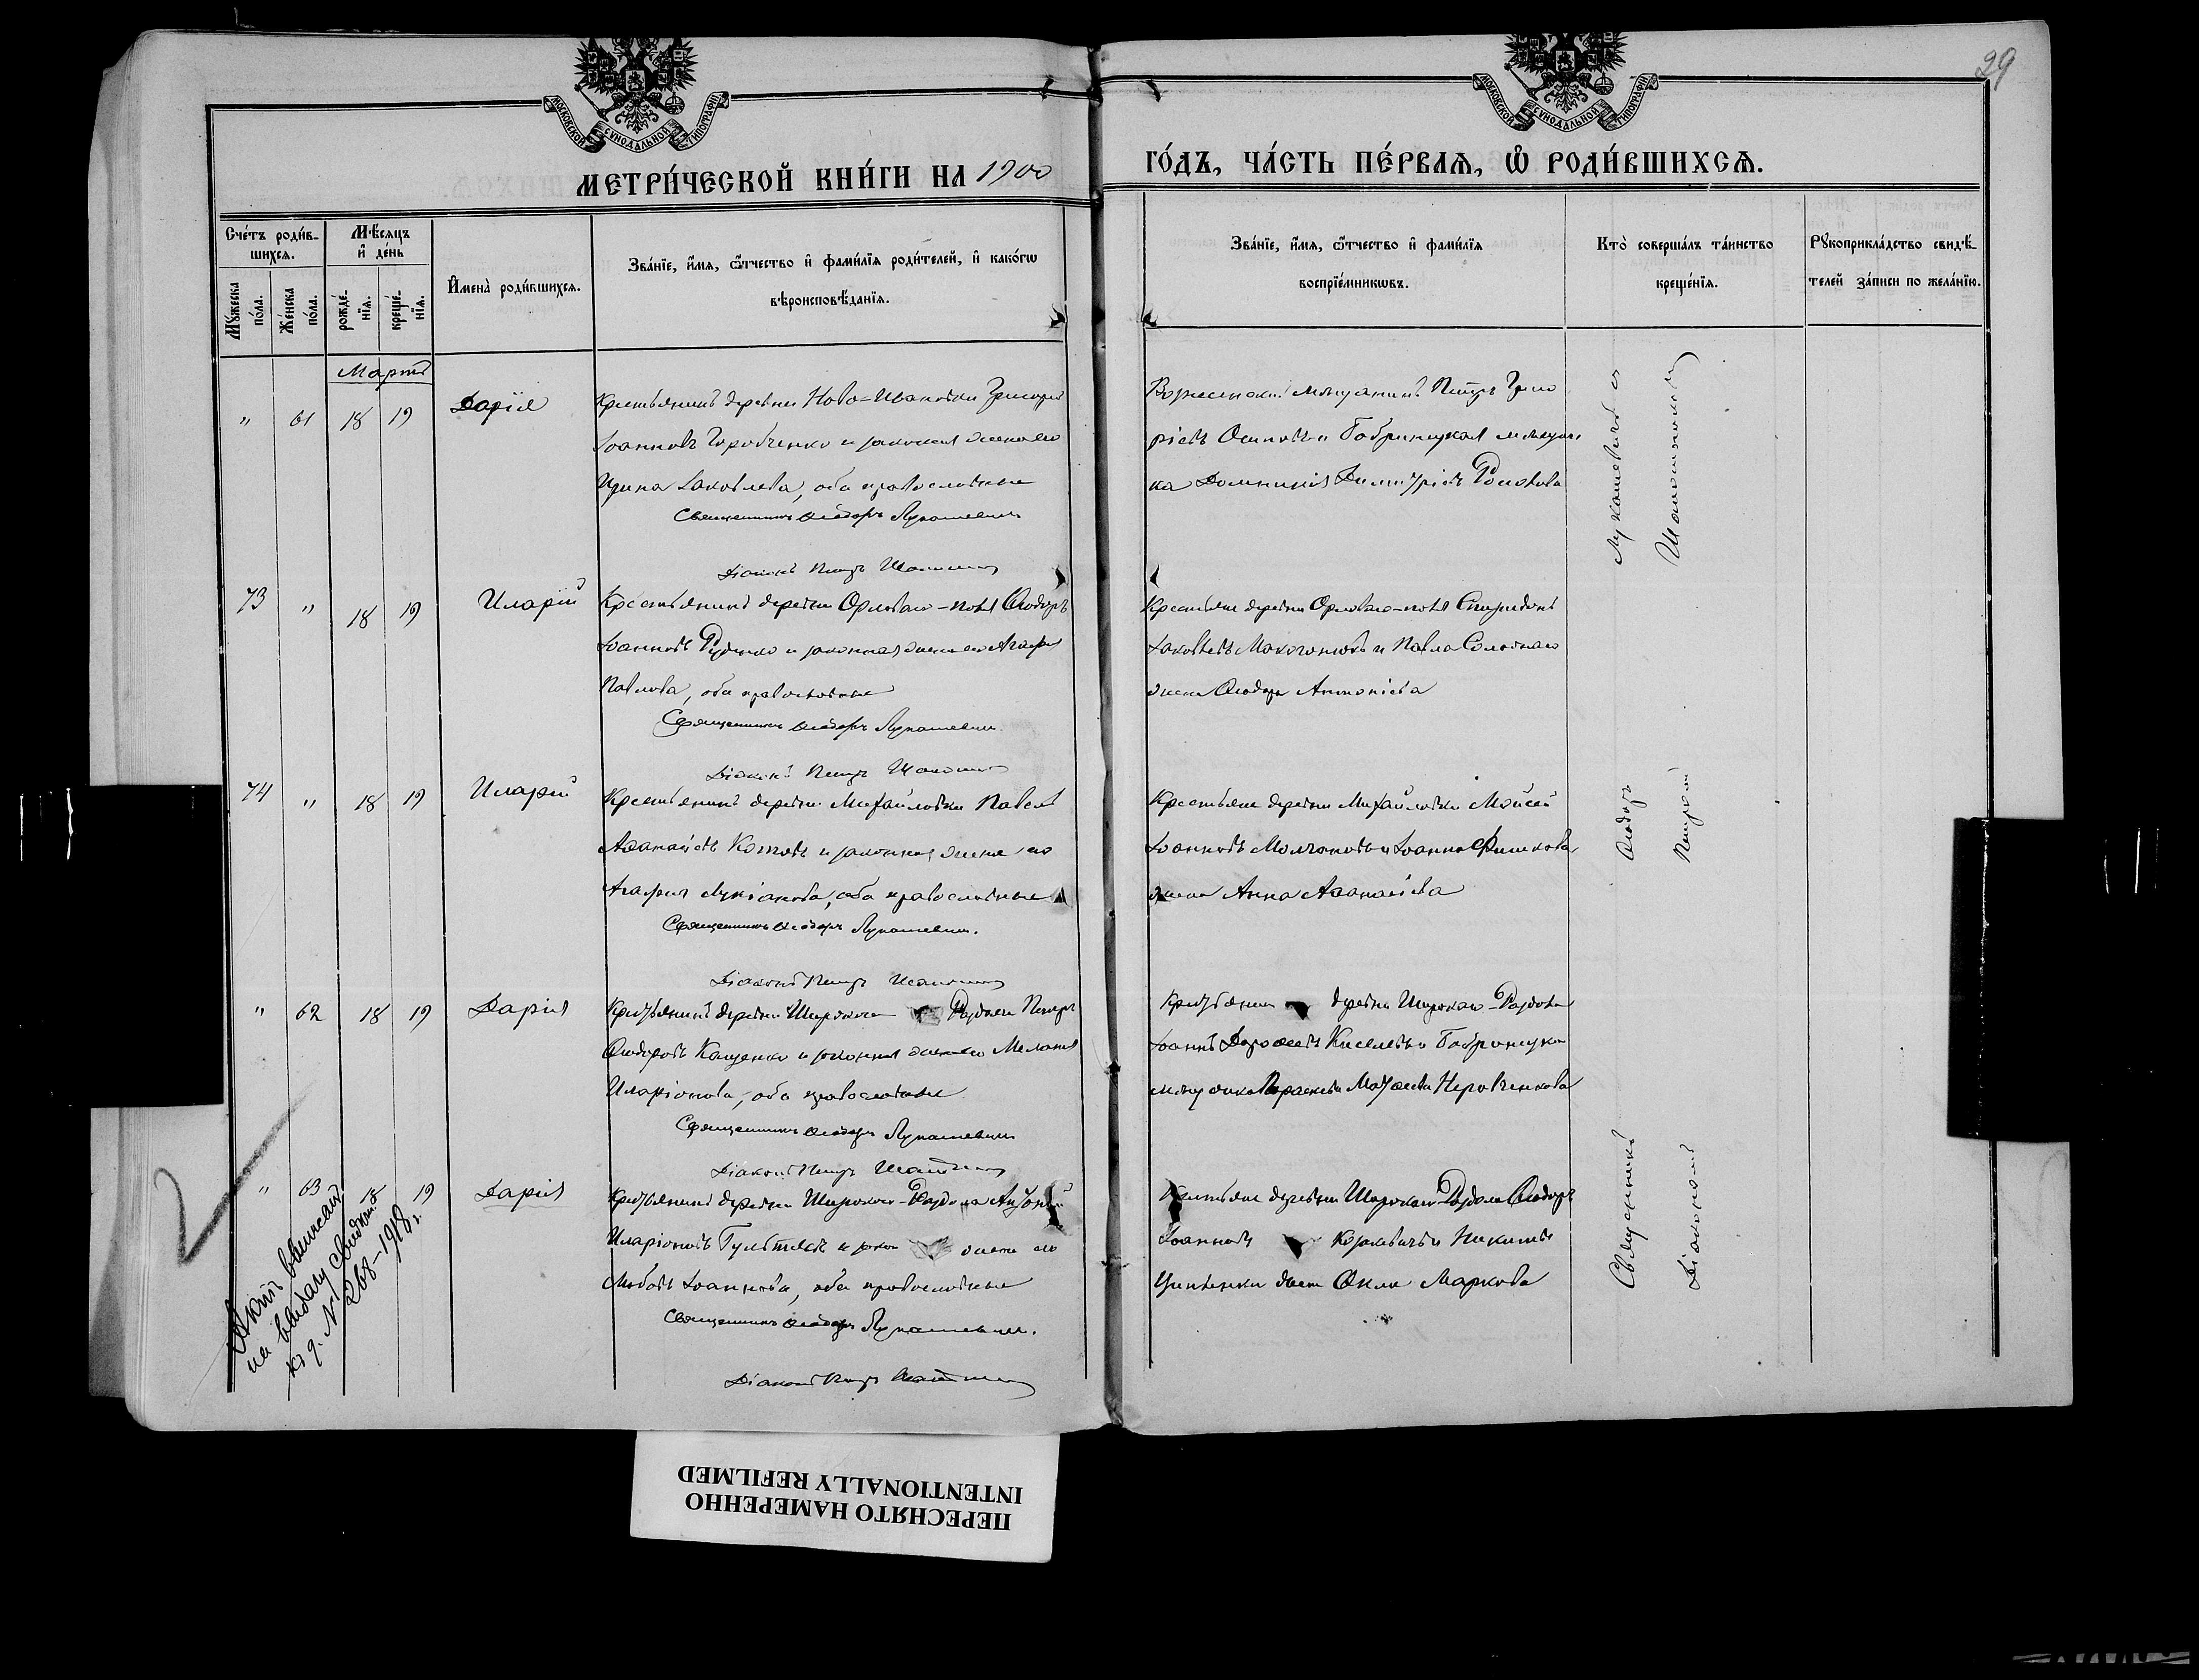 29
МОСКОВСКОЙ СѴНОДАЛЬНОЙ ТИПОГРАФІИ
МОСКОВСКОЙ СѴНОДАЛЬНОЙ ТИПОГРАФІИ
МЕТРИ́ЧЕСКОЙ КНИ́ГИ НА 1900
ГО́ДЪ, ЧА́СТЬ ПЕ́РВАѦ, Ѡ҆ РОДИ́ВШИХСѦ.
Сче́тъ роди́в-
шихсѧ.
Мꙋ́жеска
по́ла.
Же́нска
по́ла.
Мѣ́сѧцъ
и҆ де́нь
рожде́-
нїѧ.
креще́-
нїѧ.
И҆мена̀ роди́вшихсѧ.
Зва́нїе, и҆́мѧ, ѻ҆́тчество и҆ фами́лїѧ роди́телей, и҆ како́гѡ
вѣроисповѣ́данїѧ.
Зва́нїе, и҆́мѧ, ѻ҆́тчество и҆ фами́лїѧ
воспрїе́мникѡвъ.
Кто̀ соверша́лъ та́инство
креще́нїѧ.
Рꙋкоприкла́дство свидѣ́-
телей за́писи по жела́нїю.
Мартъ
" 61 18 19 Дарія
Крестьянинъ деревни Ново-Ивановки Григорій
Іоанновъ Горобченко и законная жена его
Ирина Іаковлева, оба православные
Священникъ Ѳеодоръ Лукашевич
Діаконъ Петръ
Вознесенскій мѣщанинъ Петръ Григо
ріевъ Осиповъ и Бобринецкая мѣщан
ка Домникія Димитріева Попова
73 " 18 19 Иларій
Крестьянинъ деревни Орловаго-поля Ѳеодоръ
Іоанновъ Руденко и законная жена его Агафія
Павлова, оба православные
Священникъ Ѳеодоръ Лукашевич
Діаконъ Петръ
Крестьяне деревни Орловаго-поля Спиридонъ
Іаковлевъ и Павла
жена Ѳеодора Антоніева
74 " 18 19 Иларій
Крестьянинъ деревни Михайловки Павелъ
Аѳанасіевъ Котовъ и законная жена его
Агафія Лукіанова, оба православные
Священникъ Ѳеодоръ Лукашевич.
Діаконъ Петръ
Крестьяне деревни Михайловки Мойсей
Іоанновъ Молчановъ и Іоанна Фишкова
жена Анна Аѳанасіева
" 62 18 19 Дарія
Крестьянинъ деревни Широкаго Раздола Петръ
Ѳеодоровъ Кащенко и законная жена его Меланія
Иларіонова, оба православные
Священникъ Ѳеодоръ Лукашевич
Діаконъ Петръ
Крестьянин деревни Широкаго-Раздола
Іоаннъ Дороѳеевъ Киселевъ и Бобринецкая
мѣщанка Параскева Моѵсеева
" 63 18 19 Дарія
Крестьянинъ деревни Широкаго-Раздола Антоній
Иларіоновъ и закон жена его
Любовь Іоаннова, оба православные
Священникъ Ѳеодоръ Лукашевич.
Діаконъ Петръ
Крестьяне деревни Широкаго-Раздола Ѳеодоръ
Іоанновъ и Никиты
жена Ѳекла Маркова
Священникъ Ѳеодоръ Лукашевичъ съ
Діакономъ Петромъ
Актъ выписанъ
на выдачу свидѣт.
къ д. № 268-1918 г.
ПЕРЕСНЯТО НАМЕРЕННО
INTENTIONALLY REFILMED